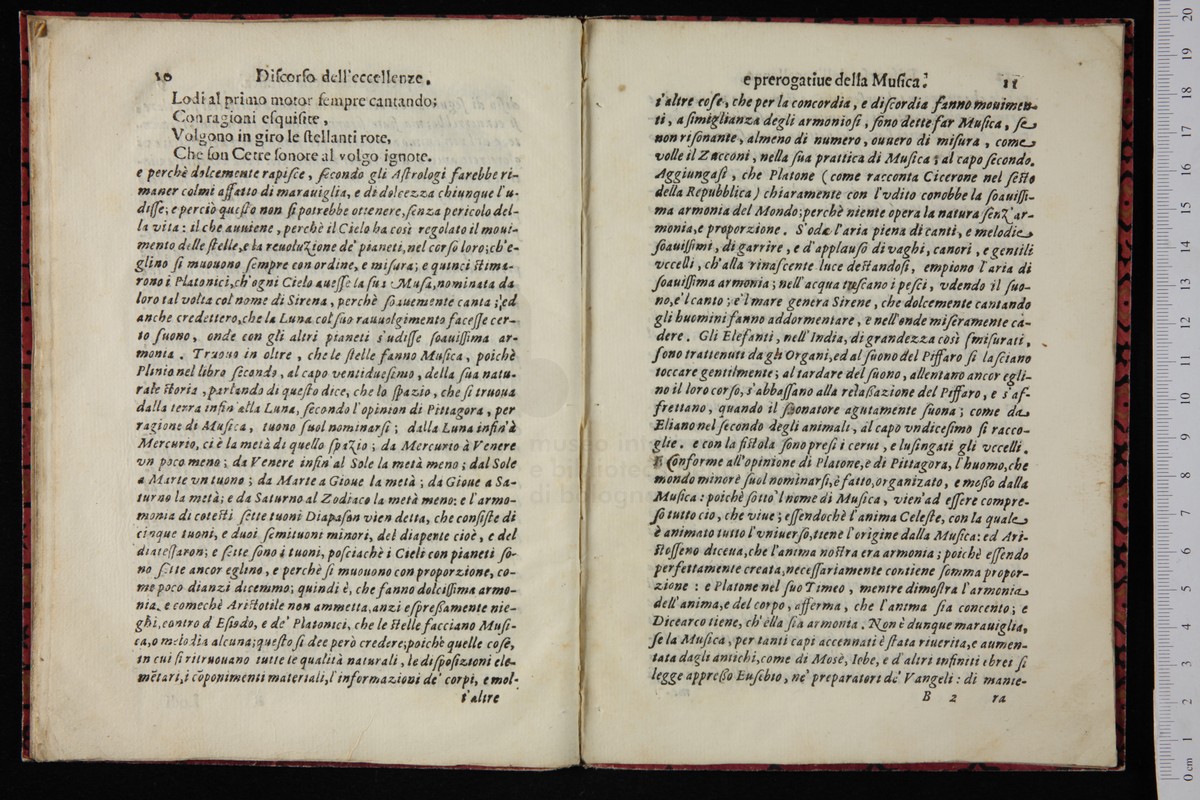 10 Diſcorſo dell'eccellenze.
Lodi al primo motor ſempre cantando;
Con ragioni eſquiſite,
Volgono in giro le ſtellanti rote,
Che ſon Cetre ſonore al volgo ignote.
e perchè dolcemente rapiſce, ſecondo gli Aſtrologi farebbe ri-
maner colmi affatto di marauiglia, e di dolcezza chiunque l'u-
diſſe; e perciò queſto non ſi potrebbe ottenere, ſenza pericolo del-
la vita: il che auuiene, perchè il Cielo ha così regolato il moui-
mento delle ſtelle, e la reuoluzione de' pianeti, nel corſo loro; ch'e-
glino ſi muouono ſempre con ordine, e miſura; e quinci ſtima-
rono i Platonici, ch'ogni Cielo aueſſe la ſua Muſa, nominata da
loro tal volta col nome di Sirena, perchè ſoauemente canta; ed
anche credettero, che la Luna col ſuo rauuolgimento faceſſe cer-
to ſuono, onde con gli altri pianeti s'udiſſe ſoauiſſima ar-
monia. Truouo in oltre, che le ſtelle fanno Muſica, poichè
Plinio nel libro ſecondo, al capo ventidueſimo, della ſua natu-
rale ſtoria, parlando di queſto dice, che lo ſpazio, che ſi truoua
dalla terra infin'alla Luna, ſecondo l'opinion di Pittagora, per
ragione di Muſica, tuono ſuol nominarſi; dalla Luna infin'à
Mercurio, ci è la metà di quello ſpazio; da Mercurio à Venere
vn poco meno; da Venere infin'al Sole la metà meno; dal Sole
a Marte vn tuono; da Marte a Gioue la metà; da Gioue a Sa-
turno la metà; e da Saturno al Zodiaco la metà meno: e l'armo-
monia di coteſti ſette tuoni Diapaſon vien detta, che conſiſte di
cinque tuoni, e duoi ſemituoni minori, del diapente cioè, e del
diateſſaron; e ſette ſono i tuoni, poſciachè i Cieli con pianeti ſo-
no ſette ancor eglino, e perchè ſi muouono con proporzione, co-
me poco dianzi dicemmo; quindi è, che fanno dolciſſima armo-
nia. e comechè Ariſtotile non ammetta, anzi eſpreſſamente nie-
ghi, contro d'Eſiodo, e de' Platonici, che le ſtelle facciano Muſi-
ca, o melodia alcuna; queſto ſi dee però credere; poichè quelle coſe,
in cui ſi ritruouano tutte le qualità naturali, le diſpoſizioni ele-
mētari, i cōponimenti materiali, l'informazioni de' corpi, e mol-
t'altre
e prerogatiue della Muſica. 11
t'altre coſe, che per la concordia, e diſcordia fanno mouimen-
ti, a ſimiglianza degli armonioſi, ſono dette far Muſica, ſe
non riſonante, almeno di numero, ouuero di miſura, come
volle il Zacconi, nella ſua prattica di Muſica; al capo ſecondo.
Aggiungaſi, che Platone (come racconta Cicerone nel ſeſto
della Repubblica) chiaramente con l'vdito conobbe la ſoauiſſi-
ma armonia del Mondo; perchè niente opera la natura ſenz'ar-
monia, e proporzione. S'ode l'aria piena di canti, e melodie
ſoauiſſimi, di garrire, e d'applauſo di vaghi, canori, e gentili
vccelli, ch'alla rinaſcente luce deſtandoſi, empiono l'aria di
ſoauiſſima armonia; nell'acqua treſcano i peſci, vdendo il ſuo-
no, e'l canto; e'l mare genera Sirene, che dolcemente cantando
gli huomini fanno addormentare, e nell'onde miſeramente ca-
dere. Gli Elefanti, nell'India, di grandezza così ſmiſurati,
ſono trattenuti da gli Organi, ed al ſuono del Piffaro ſi laſciano
toccare gentilmente; al tardare del ſuono, allentano ancor egli-
no il loro corſo, s'abbaſſano alla relaſſazione del Piffaro, e s'af-
frettano, quando il ſonatore agutamente ſuona; come da
Eliano nel ſecondo degli animali, al capo vndiceſimo ſi racco-
glie. e con la fiſtola ſono preſi i cerui, e luſingati gli vccelli.
E conforme all'opinione di Platone, e di Pittagora, l'huomo, che
mondo minore ſuol nominarſi, è fatto, organizato, e moſſo dalla
Muſica: poichè ſotto'l nome di Muſica, vien'ad eſſere compre-
ſo tutto ciò, che viue; eſſendochè l'anima Celeſte, con la quale
è animato tutto l'vniuerſo, tiene l'origine dalla Muſica: ed Ari-
ſtoſſeno diceua, che l'anima noſtra era armonia; poichè eſſendo
perfettamente creata, neceſſariamente contiene ſomma propor-
zione: e Platone nel ſuo Timeo, mentre dimoſtra l'armonia
dell'anima, e del corpo, afferma, che l'anima ſia concento; e
Dicearco tiene, ch'ella ſia armonia. Non è dunque marauiglia,
ſe la Muſica, per tanti capi accennati è ſtata riuerita, e aumen-
tata dagli antichi, come di Mosè, Iobe, e d'altri infiniti ebrei ſi
legge appreſſo Euſebio, ne' preparatori de' Vangeli: di manie-
B 2 ra